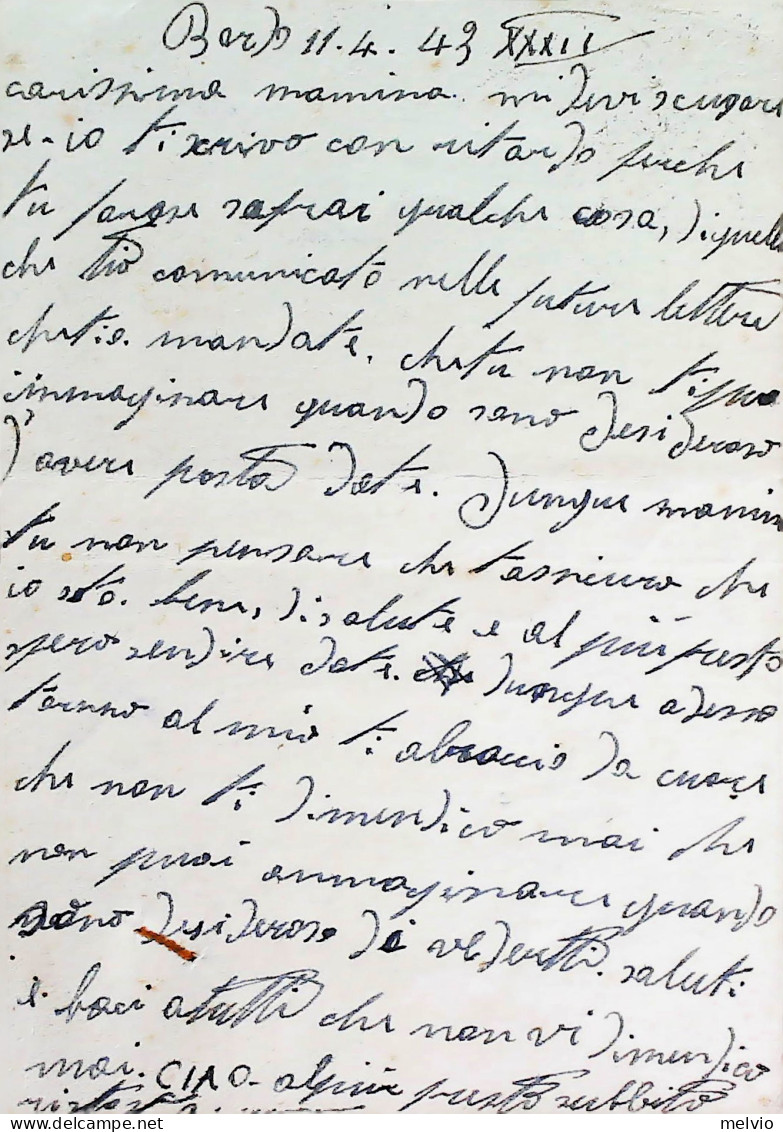 11.4.43 XXXII
carissima mamina. mi devi scugare
se-io ti scrivo con ritardo perche
tu forse saprai qualche cosa, di quello
che tiò comunicato nelle future lettere
che tio. mandate. che tu non ti puo
immaginare quando sono desideroso
d'avere posta date. dunque mamina
tu non pensare che tassicuro che
io sto. bene, di salute e al più presto
spero sendire date. dunque adesso
termino al mio ti abraccio da cuore
che non ti dimendico mai che
non puoi ammaginare quando
sono desideroso di vederti. saluti
e. baci a tutti che non vi dimendico
mai. CIAO. al più presto subbito
melvio